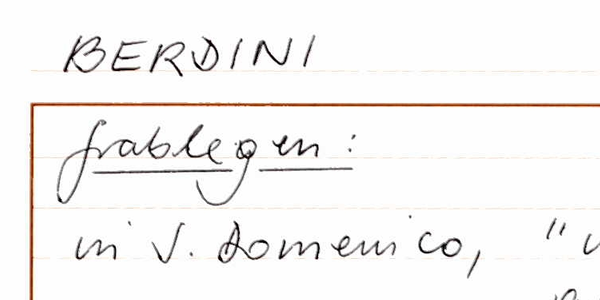 BERDINI
Grablegen:
in S. Domenico, "